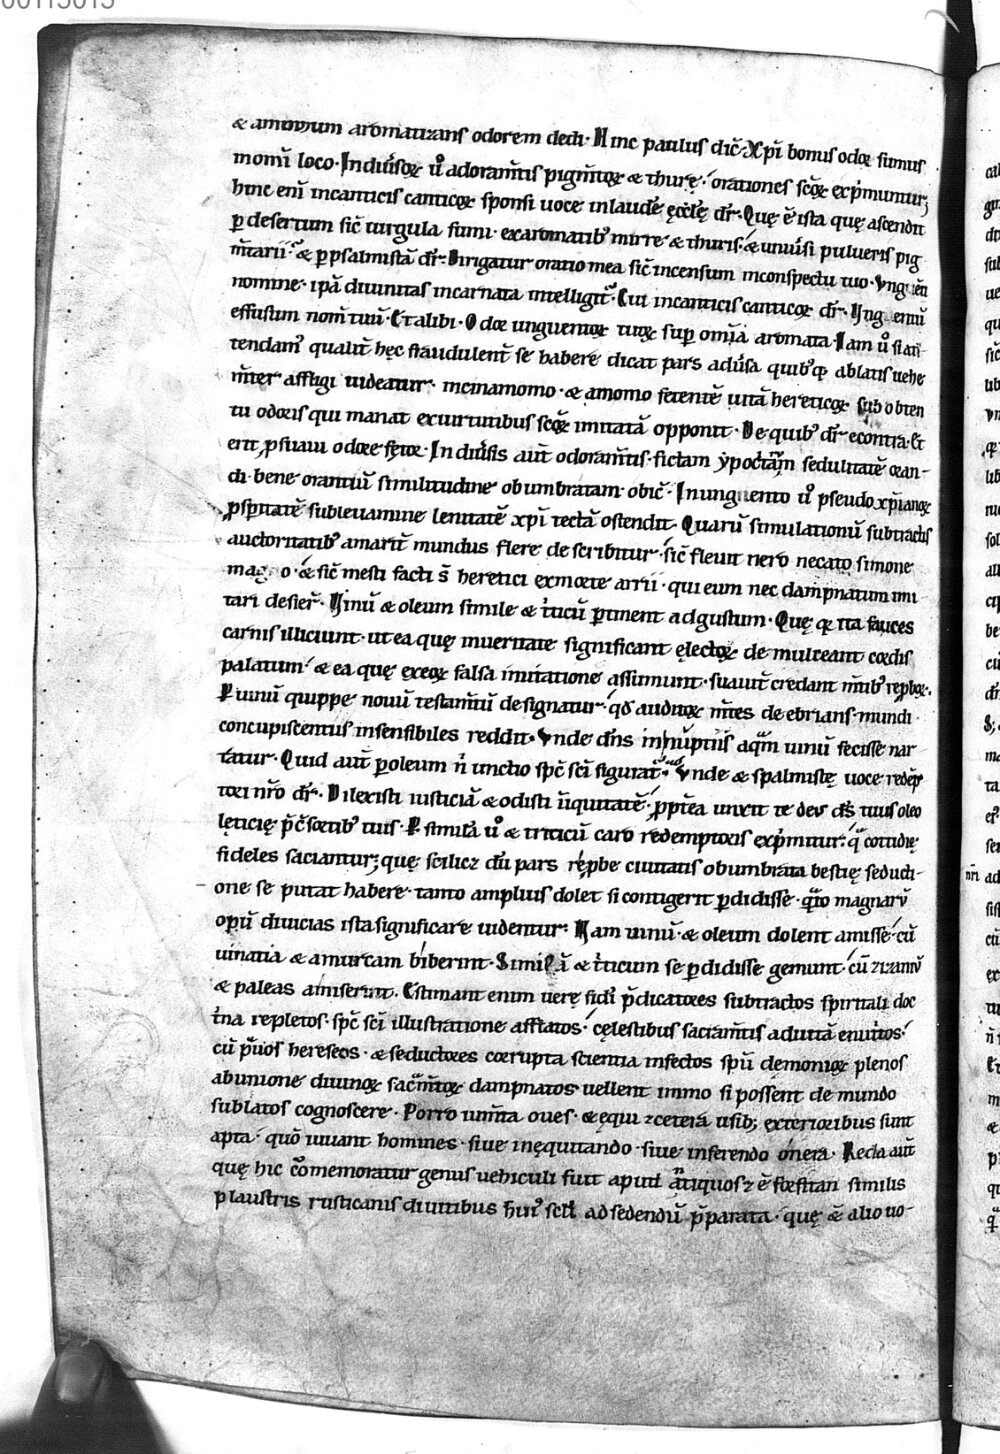 00113013
& amomum aromatizans odorem dedi· Hinc paulus dic̄· Xp̄i bonus odoꝝ sumus
momī loco· In diūsoꝝ ū adoram̄tis pigm̄toꝝ & thurę· orationes sc̄oꝝ exp̄muntur;
hinc eni incanticis canticoꝝ sponsi uoce inlaudē ęcc̄lę dr̄· Quę ē ista quę ascendit
p̱ desertum sic̄ uirgula fumi· exaromatib; mirre & thuris· & uniūsi pulueris pig
m̄tarii· & p̱ psalmistā dr̄· Dirigatur oratio mea sic̄ incensum inconspectu tuo· Unguēn
nomine· ipā diuinitas incarnata intelligit̄· Cui incanticis canticoꝝ dr̄· Ungentū
effusum nom̄ tuū· Et alibi· Odoꝝ unguentoꝝ tuoꝝ sup̱ om̄ia aromata· Iam ū ..
tendam; qualit̄ hęc fraudulent̄ se habere dicat pars aduŝa quib; q; ablatis uehe
m̄ter affligi uideatur· incinamomo· & amomo fetentē uitā hereticoꝝ sub obten
tu odoris qui manat exuirtutibus sc̄oꝝ imitatā opponit· De quib; dr̄ econtra· Et
erit ꝓ suaui odore fętor· In diūsis aut̄ odoram̄tis· fictam ypoc̄tam sedulitatē oran-
di· bene orantiū similitudine obumbratam· obic̄· In unguento ū pseudo xp̄ianoꝝ
ꝓsp̱itatē subleuamine lenitatē xp̄i tectā ostendit· Quarū simulationū subtractis
auctoritatib; amarit̄ mundus flere describitur· sic̄ fleuit nero necato simone
mago· & sic̄ mesti facti s̄ heretici exmorte arrii· qui eum nec dampnatum imi
tari desier̄· Uinū & oleum simile & t̄ticū p̱tinent adgustum· Quę q; ita fauces
carnis illiciunt· ut ea quę inueritate significant ęlectoꝝ de mulceant cordis
palatum· & ea quę ęxeoꝝ falsa imitatione assumunt· suauit̄ credant m̄tib; rep̱boꝝ.
P̱ uinū quippe nouū testam̄tū designatur· qd̄ auditoꝝ m̄tes debrians· mundi
concupiscentiis insensibiles reddit· Unde dn̄s in nuptiis aquam uinū fecisse nar
ratur· Quid aut̄ p̱ oleum n̄ unctio sp̄c sc̄i figurat̄· Unde & spalmistę uoce redēp
toris nr̄o dr̄· Dilexisti iusticiā & odisti iniquitatē· ꝓpt̄ea unxit te deus ds̄ tuus oleo
lęticię p̄c̄ sortib; tuis· P̱ similā ū & triticū caro redemptoris exp̄mitur· q̄ cottidię
fideles saciantur; quę scilicꝫ dū pars rep̱be ciuitatis obumbrata bestię seducti-
one se putat habere· tanto amplius dolet si contigerit p̱didisse· q̄to magnarū
op̱ū diuicias ista significare uidentur· Nam uinū· & oleum dolent amisse· cū
uinatia & amurcam biberint· Similā & t̄ticum se p̱didisse gemunt· cū zizaniū
& paleas amiserint· Estimant enim uerę fidī p̄dicatores subtractos spiritali doc
t̄na repletos· sp̄c sc̄i illustratione afflatos· cęlestibus saciam̄tis aduitā enutitos·
cū p̄uos hereseos· & seductores corrupta scientia infectos sp̄ū demonioꝝ plenos
abunione diuinoꝝ sac̄m̄toꝝ dampnatos uellent immo si possent de mundo
sublatos cognoscere· Porro ium̄ta oues· & ęqui ⁊cetera usib; exterioribus sunt
apta· quō iuuant homines· siue inęquitando· siue inferendo onera· Recla aut̄
quę hic cōmemoratur genus uehiculi fuit apud antiquos ⁊ ē forsitan similis
plaustris rusticanis diuitibus hui; scłi adsedendū p̄parata· quę & alio uo-